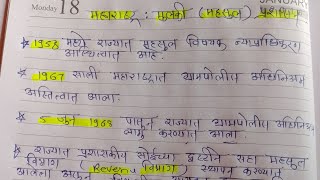 Monday 18
JANUAR
महाराष्ट्र : मुलकी (महसूल) प्रशासन
* 1958 मध्ये राज्यात महसूल विषयक न्यायाधिकरण
अस्तित्वात आहे.
* 1967 साली महाराष्ट्रात ग्रामपोलीस अधिनियम
अस्तित्वात आला.
* 5 जून 1968 पासून राज्यात ग्रामपोलीस अधिनियम
लागू करण्यात आला.
* राज्यात प्रशासकीय सोईच्या दृष्टीने सहा महसूल
विभाग (Revenue विभाग) स्थापन करण्यात
आलेला